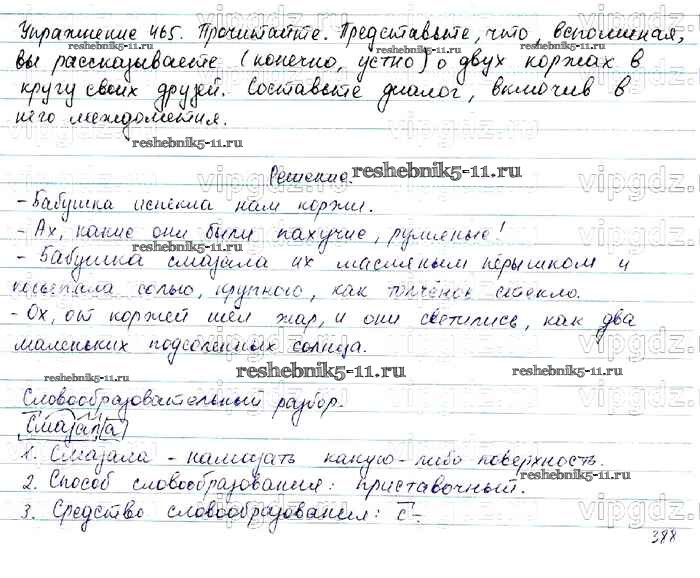 Упражнение 465. Прочитайте. Представьте, что, вспоминая,
reshebnik5-11.ru
вы рассказываете (конечно, устно) о двух коржах в
кругу своих друзей. Составьте диалог, включив в
него междометия.
reshebnik5-11.ru
Решение.
reshebnik5-11.ru
- Бабушка испекла нам коржи.
- Ах, какие они были пахучие, румяные!
reshebnik5-11.ru
- Бабушка смазала их масляным пёрышком и
посыпала солью, крупною, как толчёное стекло.
- Ох, от коржей шёл жар, и они светились, как два
маленьких подсолнечных солнца.
reshebnik5-11.ru
Словообразовательный разбор.
Смазала
1. Смазала - намазать какую-либо поверхность.
2. Способ словообразования: приставочный.
reshebnik5-11.ru
3. Средство словообразования: с-.
388
vipgdz.ru